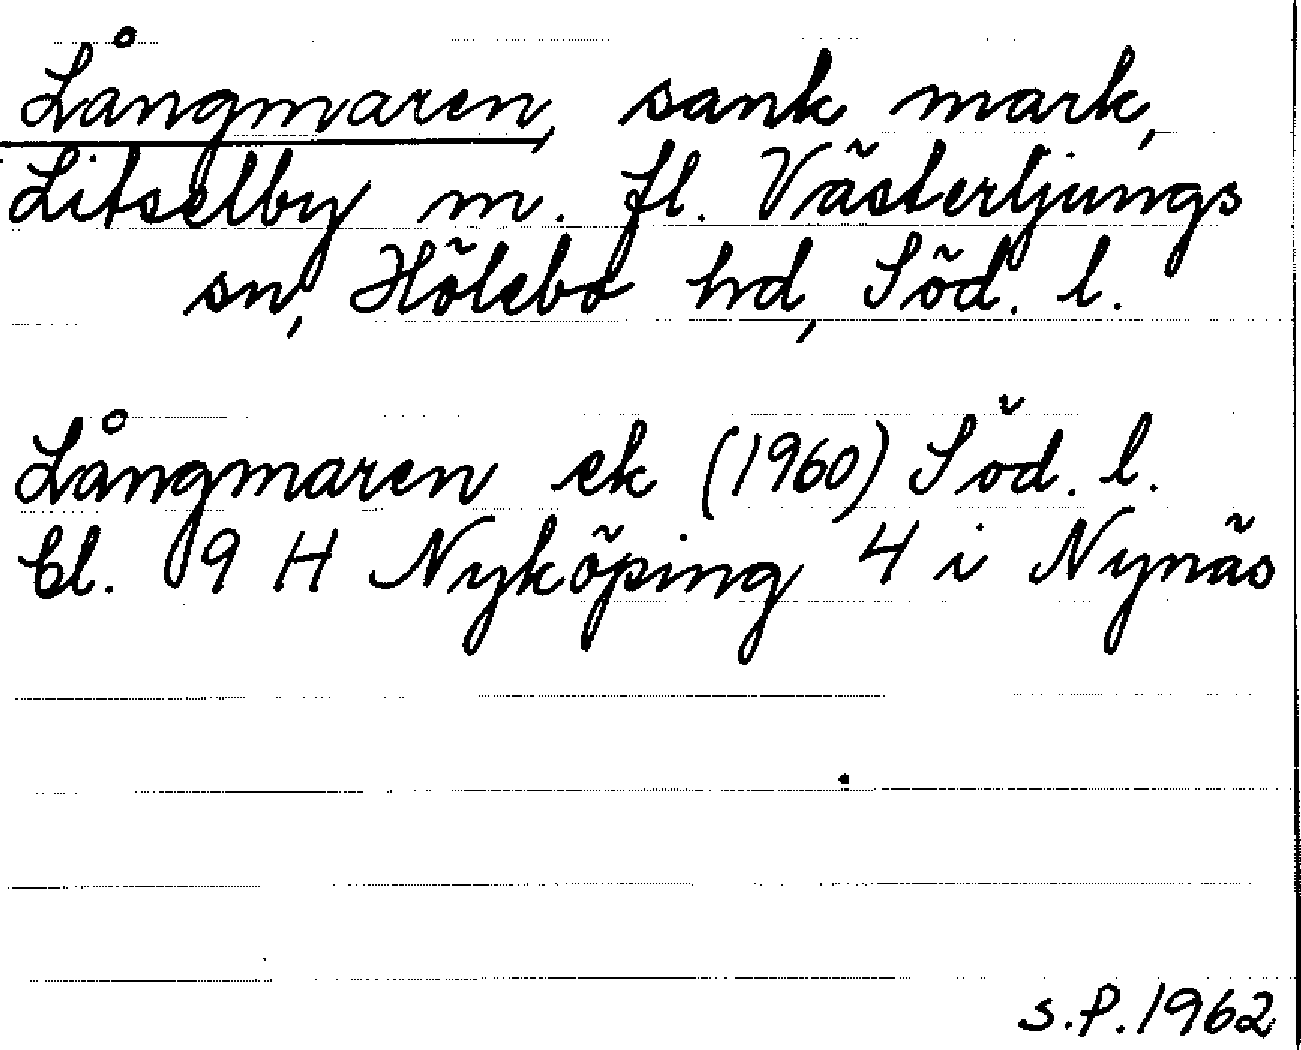 Långmaren, sank mark,
Litselby m. fl. Västerljungs
sn, Hölebo hd, Söd. l.
Långmaren ek (1960) Söd. l.
bl. 9 H Nyköping 4 i Nynäs
S.P. 1962